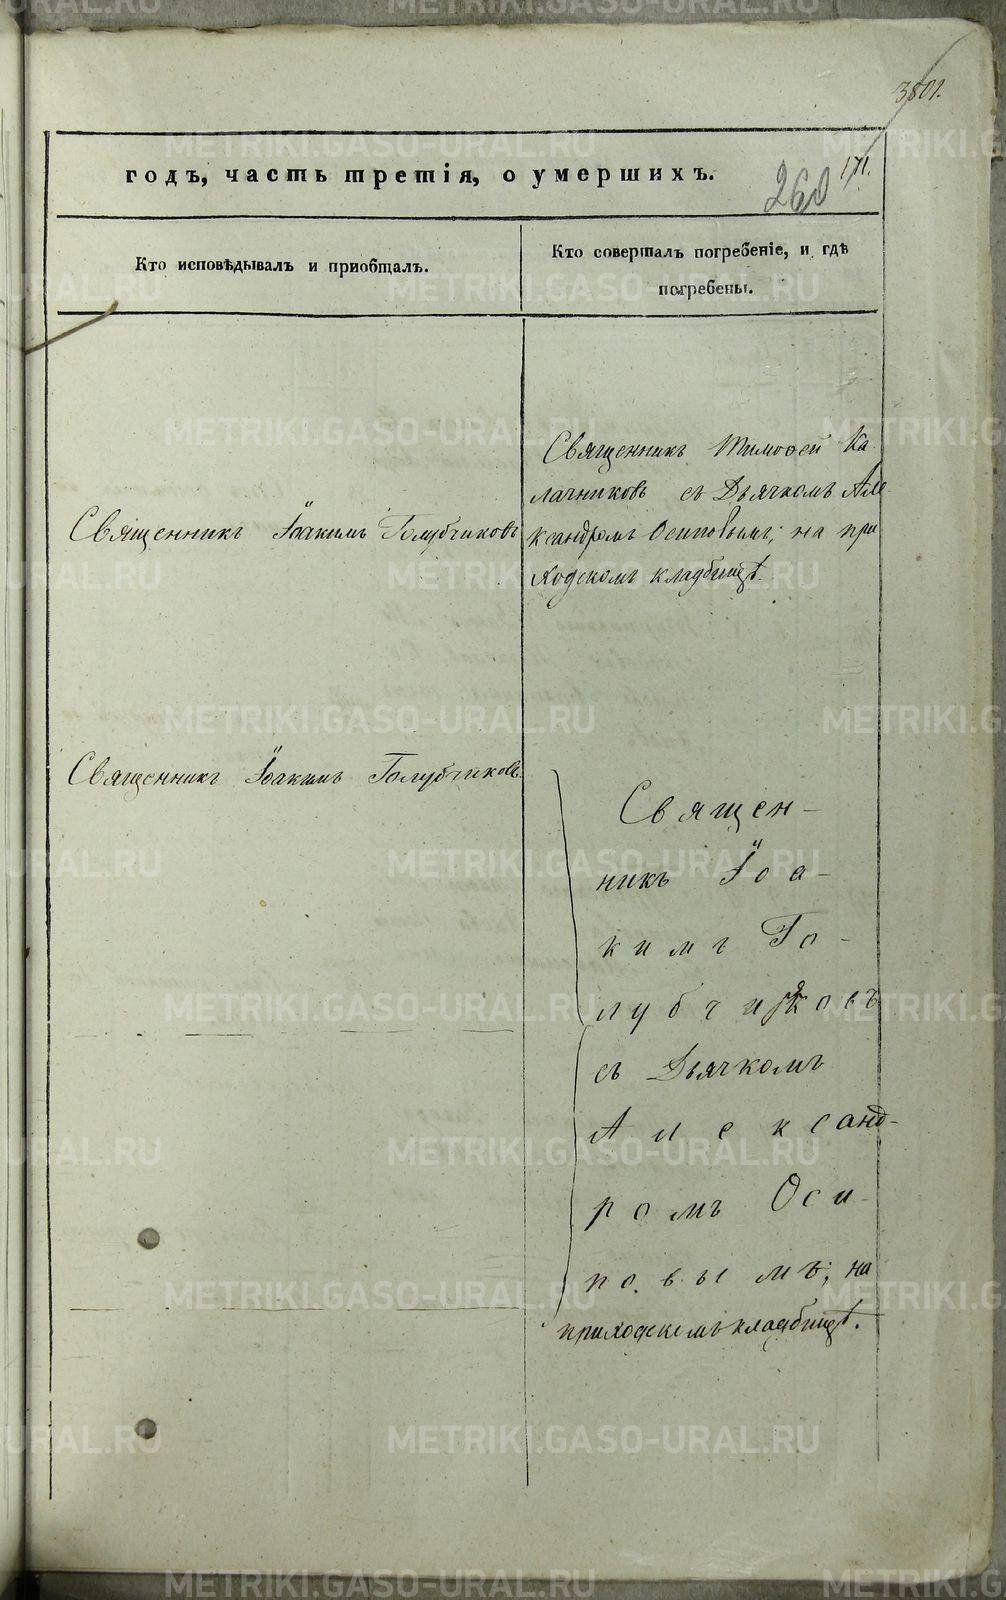 3801.
годъ, часть третія, о умершихъ.
171.
260
Кто исповѣдывалъ и пріобщалъ.
Кто совершалъ погребеніе, и гдѣ
погребены.
Священникъ Тимоѳей Ка
лачниковъ съ Дьячкомъ Але
Священникъ Іоакимъ Голубчиковъ
ксандромъ Осиповымъ; на при
ходскомъ кладбищѣ.
Священникъ Іоакимъ Голубчиковъ
Священ-
никъ Іоа-
кимъ Го-
лубчиковъ
съ Дьячкомъ
Александ-
ромъ Оси
повымъ; на
приходскомъ кладбищѣ.
METRIKI.GASO-URAL.RU